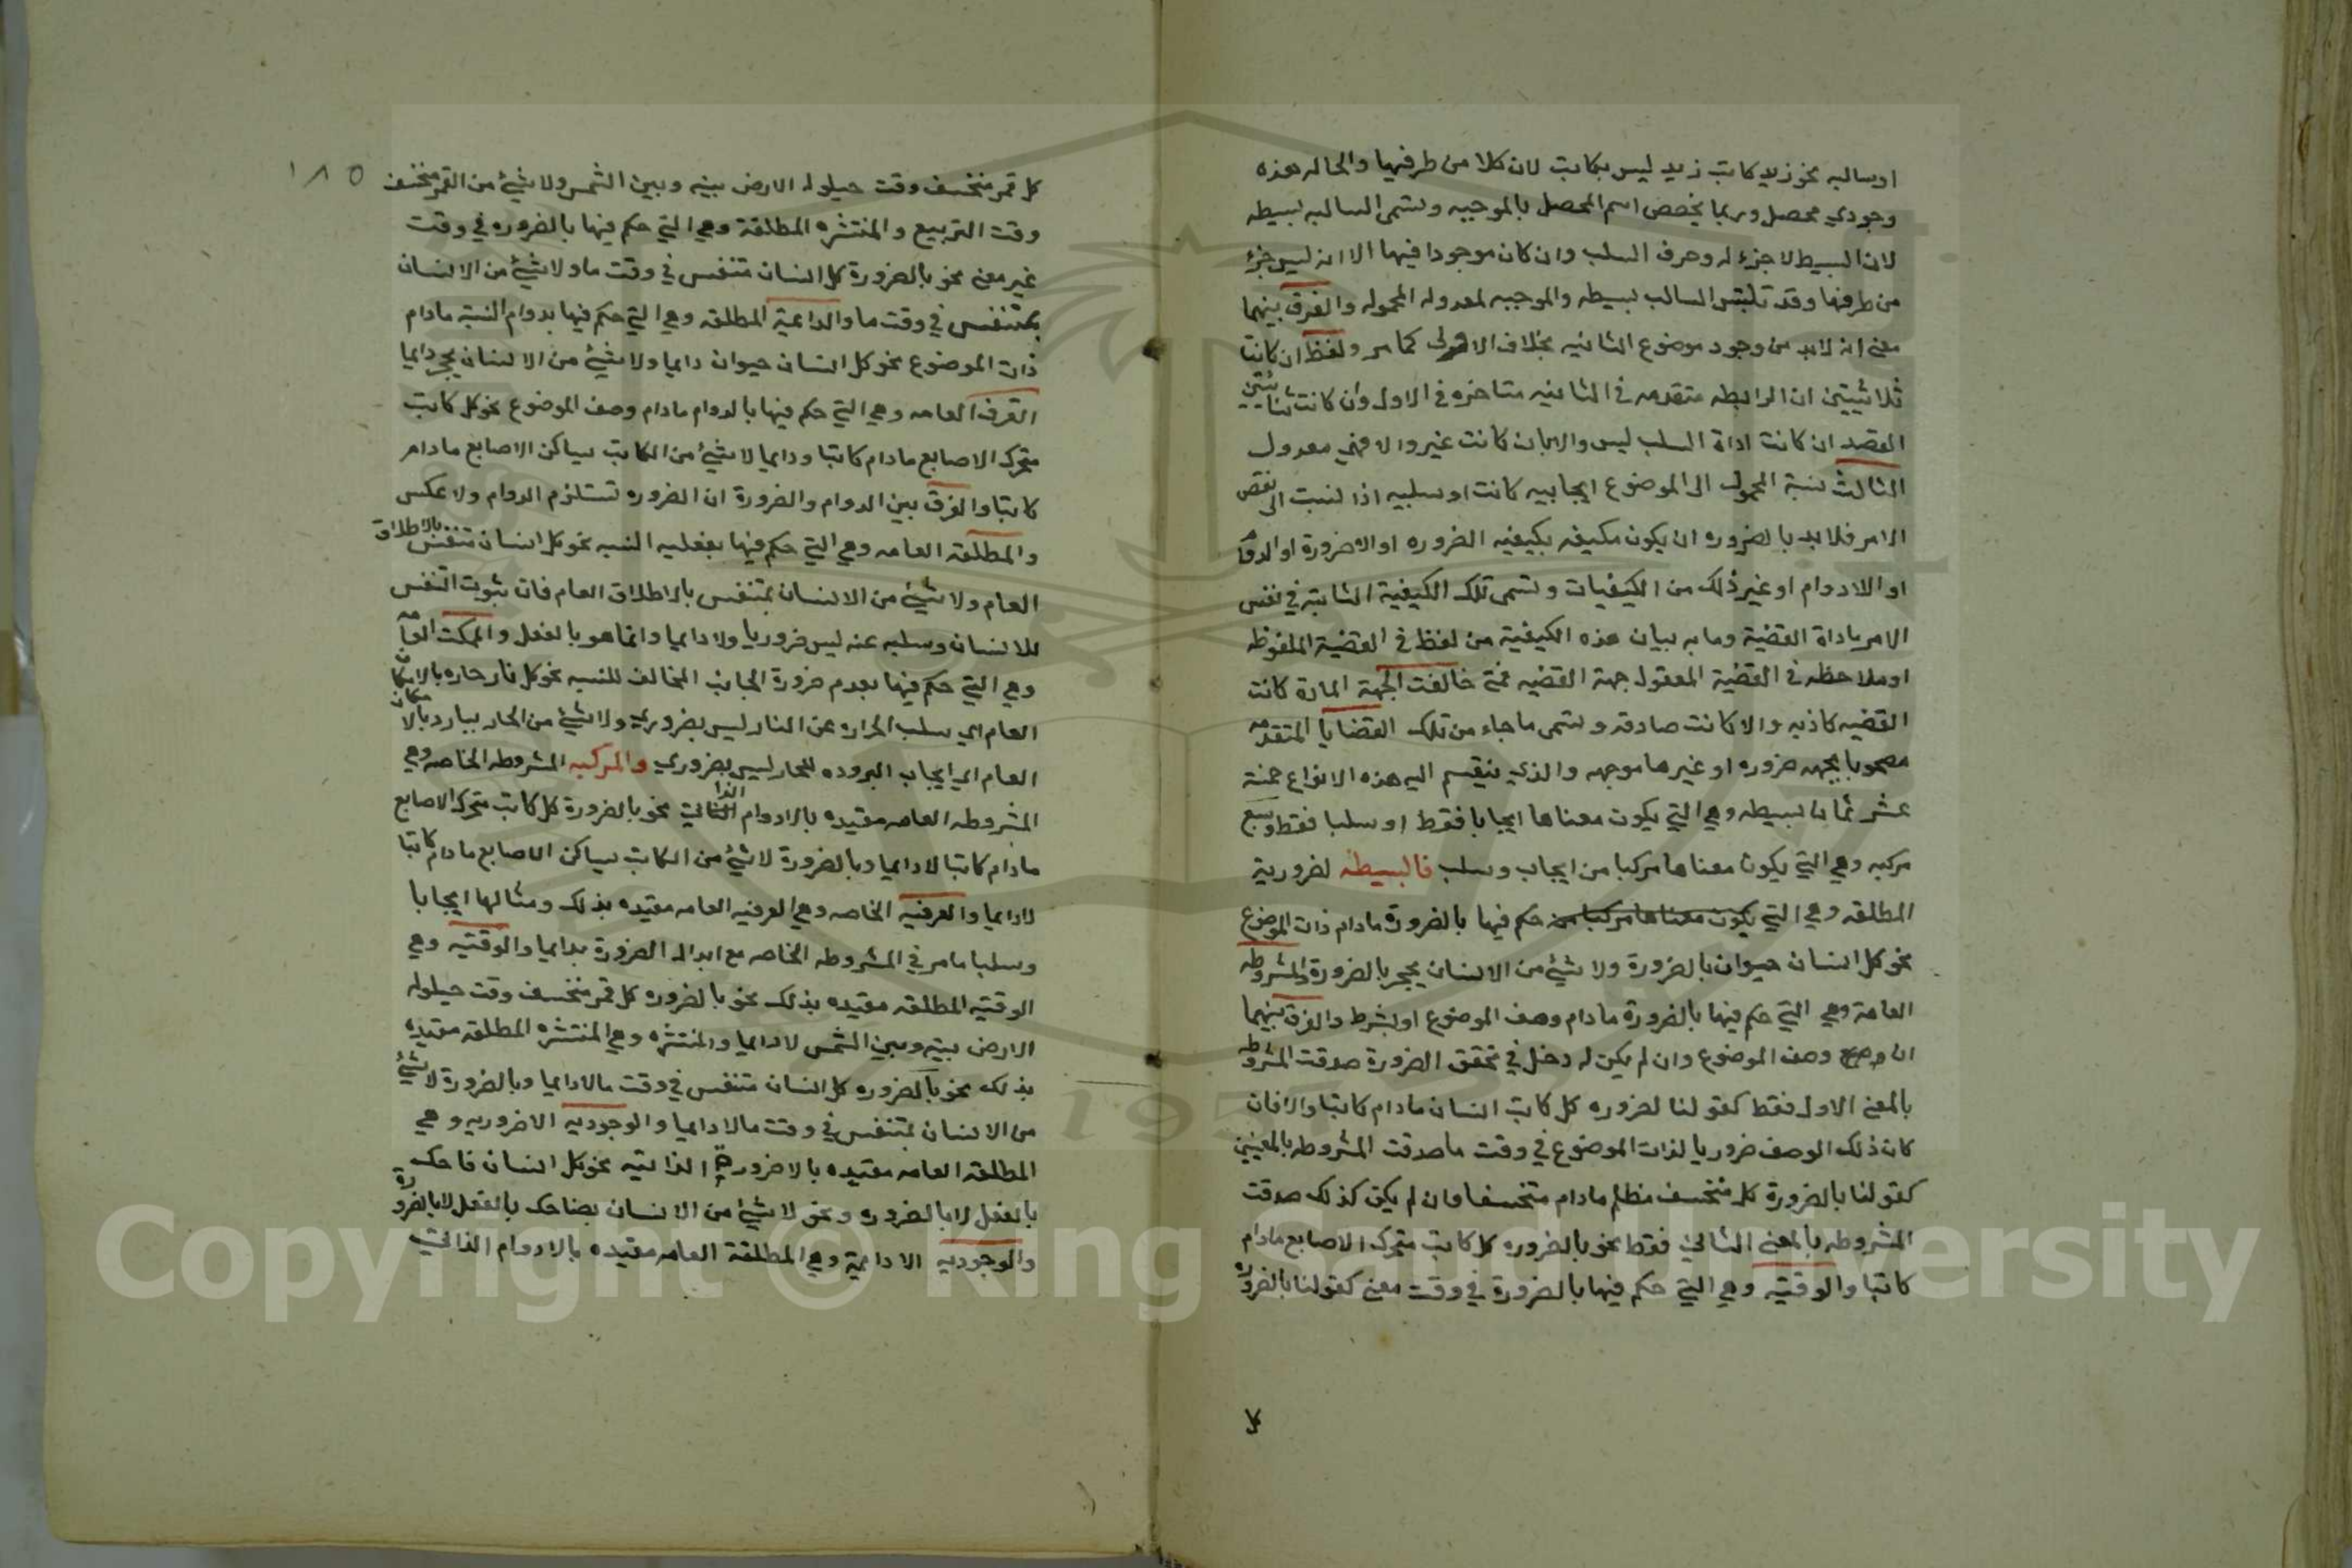 او سالبه نحو زيد كاتب زيد ليس بكاتب لان كلا من طرفيها والحاله هذه
وجودي محصل وربما يخصص اسم المحصل بالموجبه وتسمى السالبه بسيطه
لان البسيط لا جزء له وحرف السلب وان كان موجودا فيها الا انه ليس جزء
من طرفها وقد تلتبس السالب بسيطه والموجبه لمعدوله المحموله والفرق بينهما
معنى انه لابد من وجود موضوع الثانيه بخلاف الاولى كما مر ولفظ ان كانتا
ثلاثيتين ان الرابطه متقدمه في الثانيه متاخره في الاولى وان كانت ثنائيتين
القصد ان كانت اداة السلب ليس والا بان كانت غير والا فهي معدول
الثالث نسبة المحمول الى الموضوع ايجابيه كانت او سلبيه اذا نسبت الى نفس
الامر فلا بد بالضروره ان يكون مكيفه بكيفيه الضروره او الاضرورة او الدوام
او اللادوام او غير ذلك من الكيفيات وتسمى تلك الكيفية الثابتة في نفس
الامر ياداة القضية وما به بيان هذه الكيفية من لفظ في القضية الملفوظه
او ملاحظه في القضية المعقوله جهة القضيه فمتى خالفت الجهة المادة كانت
القضيه كاذبه والا كانت صادقه وتسمى ما جاء من تلك القضايا المتقدمه
مصحوبا بجهه ضروره او غيرها موجهه والذي ينقسم اليه هذه الانواع خمسة
عشر ثمان بسيطه وهي التي يكون معناها ايجابا فقط او سلبا فقط وسبع
مركبه وهي التي يكون معناها مركبا من ايجاب وسلب فالبسيطه لضرورية
المطلقه وهي التي يكون معناها مركبا من حكم فيها بالضرورة مادام ذات الموضوع
نحو كل انسان حيوان بالضرورة ولا شيئ من الانسان بحجر بالضرورة والمشروطه
العامة وهي التي حكم فيها بالضرورة مادام وصف الموضوع او بشرط والفرق بينهما
ان وصف الموضوع وان لم يكن له دخل في تحقق الضرورة صدقت المشروطه
بالمعنى الاول فقط كقولنا لضروره كل كاتب انسان مادام كاتبا والا فان
كان ذلك الوصف ضروريا لذات الموضوع في وقت ما صدقت المشروطه بالمعنيين
كقولنا بالضرورة كل منخسف مظلم مادام منخسفا وان لم يكن كذلك صدقت
المشروطه بالمعنى الثاني فقط نحو بالضروره كل كاتب متحرك الاصابع مادام
كاتبا والوقتيه وهي التي حكم فيها بالضرورة في وقت معين كقولنا بالضروره
كل
١٨٥
كل قمر منخسف وقت حيلوله الارض بينه وبين الشمس ولا شيئ من القمر بمنخسف
وقت التربيع والمنتشره المطلقة وهي التي حكم فيها بالضروره في وقت
غير معين نحو بالضرورة كل انسان متنفس في وقت ما ولا شيئ من الانسان
بمتنفس في وقت ما والدائمية المطلقه وهي التي حكم فيها بدوام النسبة مادام
ذات الموضوع نحو كل انسان حيوان دايما ولا شيئ من الانسان بحجر دايما
العرفيه العامه وهي التي حكم فيها بالدوام مادام وصف الموضوع نحو كل كاتب
متحرك الاصابع مادام كاتبا ودايما لا شيئ من الكاتب بساكن الاصابع مادام
كاتبا والفرق بين الدوام والضرورة ان الضروره تستلزم الدوام ولا عكس
والمطلقه العامه وهي التي حكم فيها بفعليه النسبه نحو كل انسان متنفس بالاطلاق
العام ولا شيئ من الانسان بمتنفس بالاطلاق العام فان ثبوت التنفس
للانسان وسلبه عنه ليس ضروريا ولا دايما وانما هو بالفعل والممكنه العامه
وهي التي حكم فيها بعدم ضرورة الجانب المخالف للنسبه نحو كل نار حاره بالامكان
العام اي سلب الحراره عن النار ليس بضروري ولا شيئ من الحار ببارد بالامكان
العام اي ايجاب البروده للحار ليس بضروري والمركبه المشروطه الخاصه وهي
المشروطه العامه مقيده بالادوام الذاتي نحو بالضرورة كل كاتب متحرك الاصابع
مادام كاتبا لادايما وبالضرورة لا شيئ من الكاتب بساكن الاصابع مادام كاتبا
لادايما والعرفيه الخاصه وهي العرفيه العامه مقيده بذلك ومثالها ايجابا
وسلبا ما مر في المشروطه الخاصه مع ابدال الضرورة بدايما والوقتيه وهي
الوقتيه المطلقه مقيده بذلك نحو بالضروره كل قمر منخسف وقت حيلوله
الارض بينه وبين الشمس لادايما والمنتشره وهي المنتشره المطلقه مقيده
بذلك نحو بالضروره كل انسان متنفس في وقت ما لادايما وبالضرورة لا شيئ
من الانسان بمتنفس في وقت ما لادايما والوجوديه الاضروريه وهي
المطلقه العامه مقيده بالاضرورة الذاتيه نحو كل انسان ضاحك
بالفعل لا بالضروره ونحو لا شيئ من الانسان بضاحك بالفعل لا بالضروره
والوجوديه الادائمية وهي المطلقة العامه مقيده بالادوام الذاتي
Copyright © King Saud University
1957